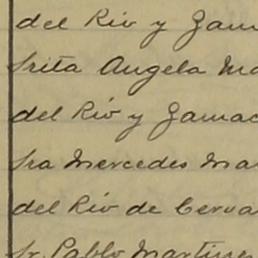 del Rio y Zam
Srita Angela Ma
del Rio y Zamac
Sra Mercedes Mar
del Rio de Cerva
Sr. Pablo Martine